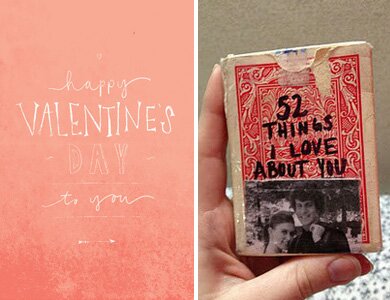 happy
VALENTINE'S
- DAY -
to you
52
THINGS
I LOVE
ABOUT YOU